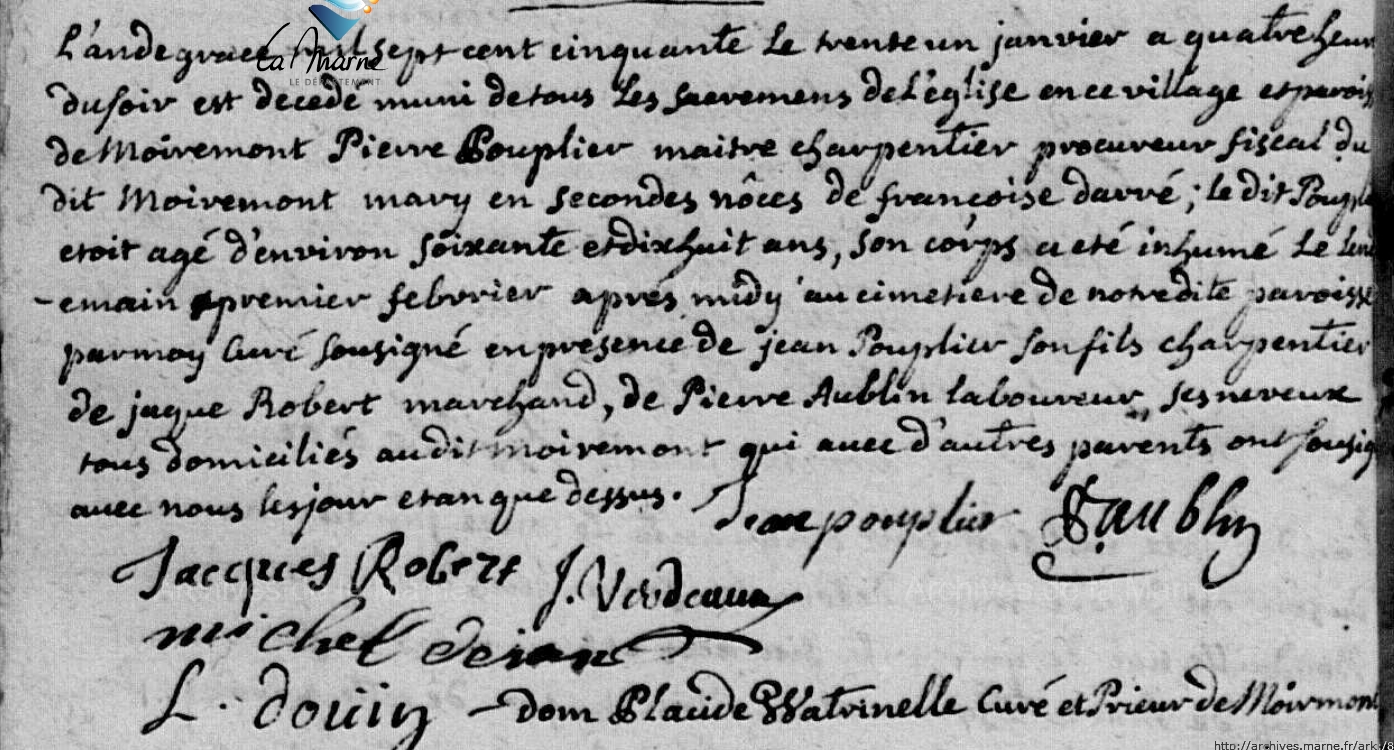 L'an de grace mil sept cent cinquante Le trente un janvier a quatre heur
La Marne
LE DÉPARTEMENT
du soir est decedé muni de tous Les sacremens de L'église en ce village et parois
de Moiremont Pierre Pouplier maitre charpentier procureur fiscal du
dit Moiremont mary en secondes nôces de françoise darré; le dit Poupl
etoit agé d'environ soixante et dix huit ans, son corps a eté inhumé Le lend
-emain premier febvrier aprés midy au cimetiere de notre dite paroisse
par moy Curé sousigné en presence de jean Pouplier son fils charpentier
de jaque Robert marchand, de Pierre Aublin laboureur, ses neveux
tous domiciliés au dit moiremont qui avec d'autres parents ont sousig
avec nous les jour et an que dessus. Jean pouplier P aublin
Jacques Robert J. Verdeaux
michel dejean
L. douin - dom Placide Watrinelle Curé et Prieur de Moirmont
http://archives.marne.fr/ark:/8